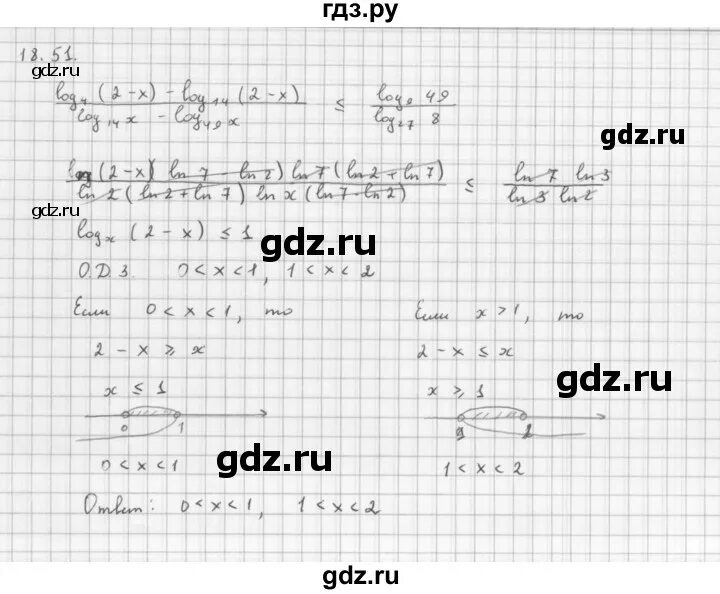 гдз.ру
18.51.
gdz.ru
gdz.ru
log₄(2-x) - log₁₄(2-x) / log₁₄x - log₄₉x ≤ log₉ 49 / log₂₇ 8
gdz.ru
(2-x)(ln 7 - ln 2) ln 7 (ln 2 + ln 7) / ln 2 (ln 2 + ln 7) ln x (ln 7 - ln 2) ≤ ln 7 ln 3 / ln 3 ln 2
gdz.ru
logₓ(2-x) ≤ 1
gdz.ru
О.Д.З. 0<x<1, 1<x<2
Если 0<x<1, то Если x>1, то
2-x ≥ x 2-x ≤ x
gdz.ru
x ≤ 1 x ≥ 1
0 1 2
0<x<1 1<x<2
gdz.ru
Ответ: 0<x<1, 1<x<2
gdz.ru
gdz.ru